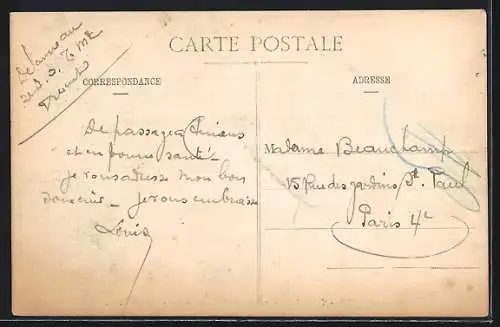 CARTE POSTALE
CORRESPONDANCE
ADRESSE
De passage a
et en bonne santé
je vous adresse mon bon
souvenir - je vous embrasse
Louis
Madame Beauchamp
15 Rue des jardins St. Paul
Paris 4e